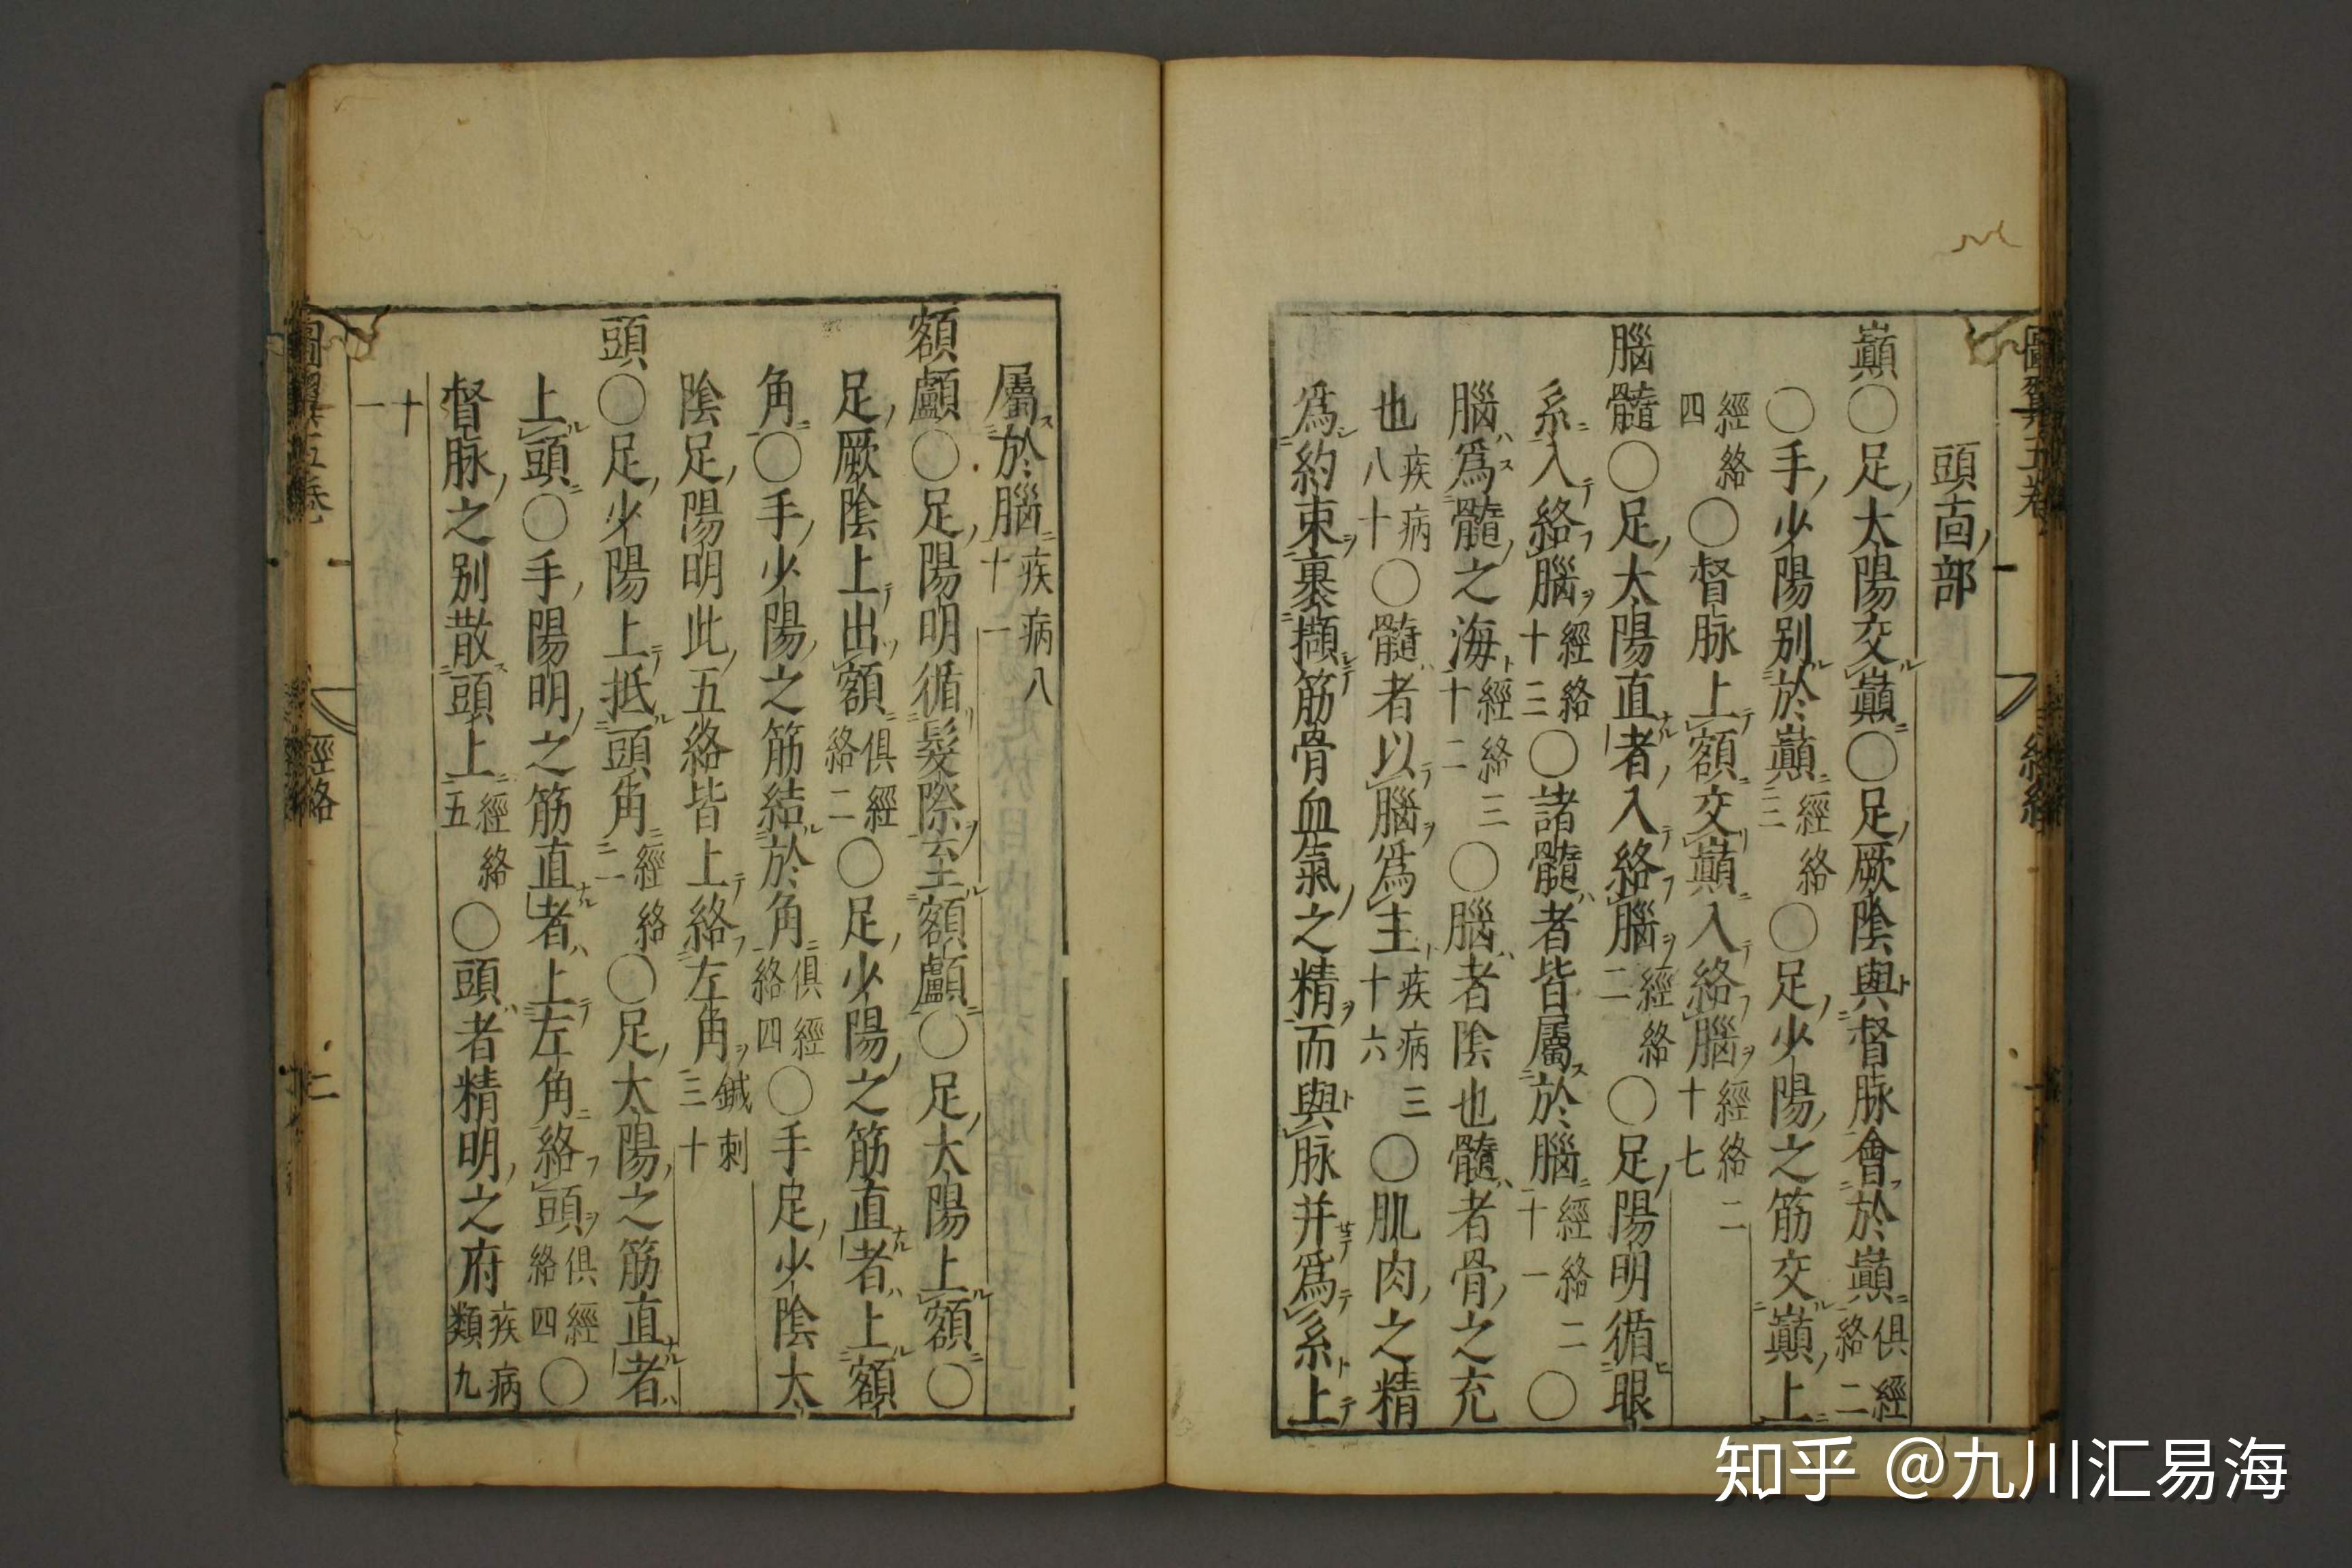 頭面部
巔○足太陽交巔○足厥陰與督脉會於巔俱經絡二
○手少陽別於巔經絡三○足少陽之筋交巔上
經絡四○督脉上額交巔入絡腦經絡二十七
腦髓○足太陽直者入絡腦經絡二○足陽明循眼
系入絡腦經絡十三○諸髓者皆屬於腦經絡二十一○
腦爲髓之海經絡三十二○腦者陰也髓者骨之充
也疾病八十○髓者以腦爲主疾病三十六○肌肉之精
爲約束裹擷筋骨血氣之精而與脉并爲系上
屬於腦疾病八十一
額顱○足陽明循髮際至額顱○足太陽上額○
足厥陰上出額俱經絡二○足少陽之筋直者上額
角○手少陽之筋結於角俱經絡四○手足少陰太
陰足陽明此五絡皆上絡左角鍼刺三十
頭○足少陽上抵頭角經絡二○足太陽之筋直者
上頭○手陽明之筋直者上左角絡頭俱經絡四○
督脉之別散頭上經絡五○頭者精明之府疾病類九
十一
圖翼五卷
經絡
二
知乎 @九川汇易海